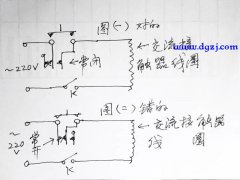 图(一) 对的
www.dgzj.com
交流接
触器线圈
~220V
常闭
K
图(二) 错的
交流接触器
线 圈
~
220
V
常
开
K